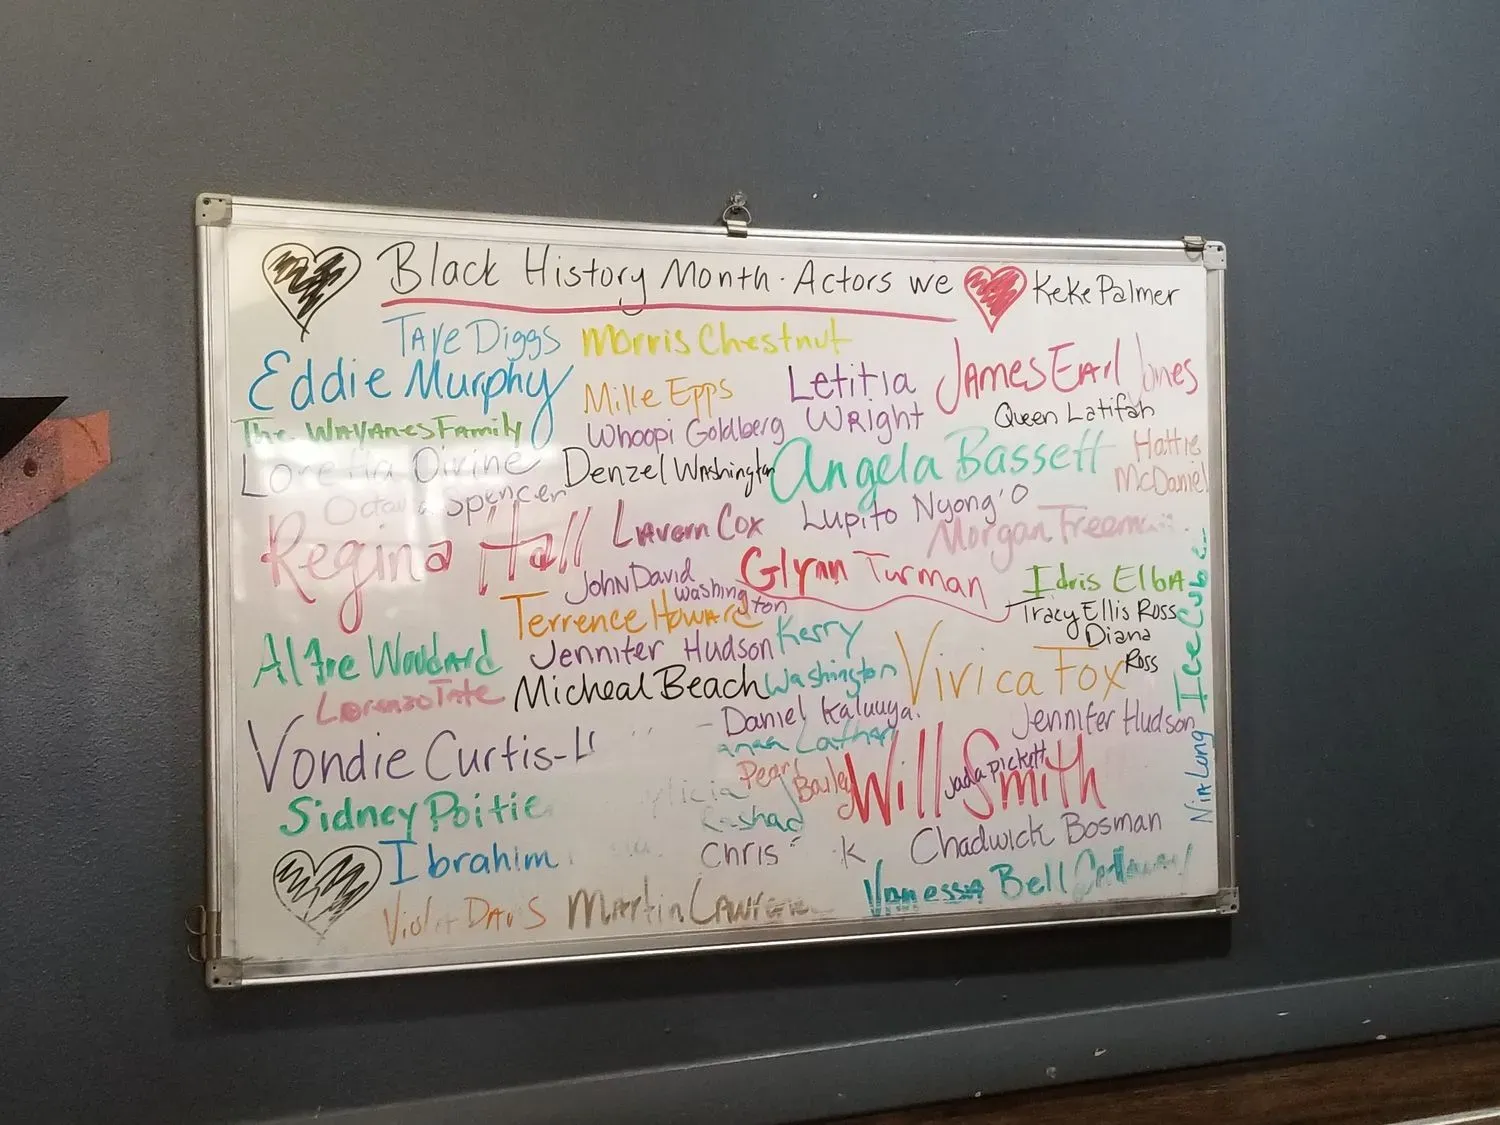 Black History Month · Actors we
KeKe Palmer
Taye Diggs
Morris Chestnut
Eddie Murphy
Mille Epps
Letitia
Wright
James Earl Jones
The Wayanes Family
Whoopi Goldberg
Queen Latifah
Loretta Divine
Denzel Washington
Angela Bassett
Hattie
McDaniel
Spencer
Regina Hall
Lavern Cox
Lupito Nyong'o
Morgan Freeman
John David
Washington
Glynn Turman
Idris Elba
Ice Cube
Terrence Howard
Tracy Ellis Ross
Diana
Ross
Alfre Woodard
Jennifer Hudson
Kerry
Washington
Vivica Fox
Lorenzo Tate
Micheal Beach
Daniel Kaluuya.
Jennifer Hudson
Vondie Curtis-
Lathan
Pearl
Bailey
Will Smith
Jada pickett
Nia Long
Sidney Poitie
Rashad
Ibrahim
Chris
K
Chadwick Bosman
Viola Davis
Martin Lawrence
Vanessa Bell